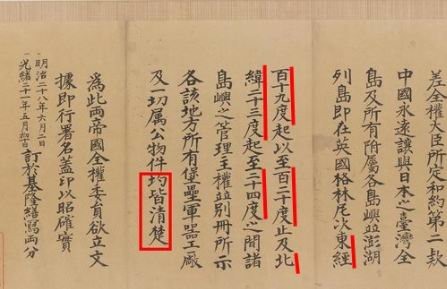 差全權大臣所定和約第二款
中國永遠讓與日本之臺灣全
島及所有附屬各島嶼並澎湖
列島即在英國格林尼次東經
百十九度起以至百二十度止及北
緯二十三度起至二十四度之間諸
島嶼之管理主權並別冊所示
各該地方所有堡壘軍器工廠
及一切屬公物件均皆清楚
為此兩帝國全權委員欲立文
據即行署名蓋印以昭確實
明治二十八年六月二日
光緒二十一年五月初十日
訂於基隆繕寫兩分